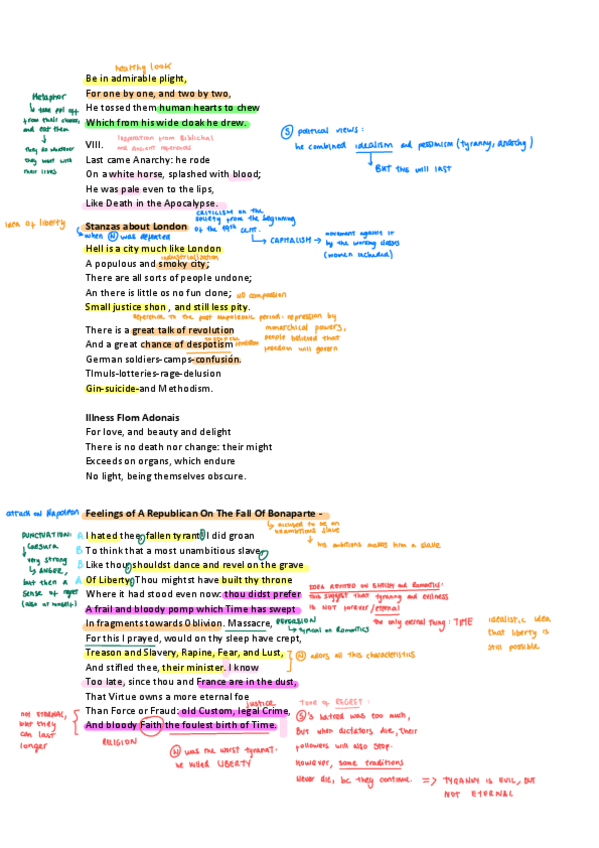 healthy look
Be in admirable plight,
For one by one, and two by two,
He tossed them human hearts to chew
Which from his wide cloak he drew.
Metaphor
↳ take ppl off
from their chests,
and eat them
they do whatever
they want with
their lives
Inspiration from Biblichal
and ancient references
VIII.
Last came Anarchy: he rode
On a white horse, splashed with blood;
He was pale even to the lips,
Like Death in the Apocalypse.
(S) political views:
he combined idealism and pessimism (tyranny, anarchy)
↳ BUT this will last
idea of liberty
Stanzas about London
↳ when (N) was defeated
criticism on the
society from the beginning
of the 19th cent.
↳ CAPITALISM → movement against it
by the working classes
(women included)
Hell is a city much like London
industrialization
A populous and smoky city;
There are all sorts of people undone;
An there is little os no fun clone; no compassion
Small justice shon , and still less pity.
reference to the post napoleonic period: repression by
monarchical powers,
people believed that
freedom will govern
There is a great talk of revolution
And a great chance of despotism
German soldiers-camps-confusión.
Tlmuls-lotteries-rage-delusion
Gin-suicide-and Methodism.
Illness Flom Adonais
For love, and beauty and delight
There is no death nor change: their might
Exceeds on organs, which endure
No light, being themselves obscure.
attack on Napoleon
Feelings of A Republican On The Fall Of Bonaparte -
↳ accused to be an
unambitious slave
↳ his ambitions makes him a slave
PUNCTUATION:
Caesura
↳ very strong
↳ ANGER,
but then a
sense of regret
(also at himself)
A I hated thee, fallen tyrant! I did groan
B To think that a most unambitious slave,
B Like thou, shouldst dance and revel on the grave
A Of Liberty. Thou mightst have built thy throne
Where it had stood even now: thou didst prefer
A frail and bloody pomp which Time has swept
IDEA REPEATED ON SHELLEY and ROMANTICS:
this suggest that tyranny and evilness
is NOT forever/eternal
In fragments towards Oblivion. Massacre, REPULSION
↳ typical on Romantics
the only eternal thing: TIME
idealistic idea
that liberty is
still possible
For this I prayed, would on thy sleep have crept,
Treason and Slavery, Rapine, Fear, and Lust,
And stifled thee, their minister. I know
(N) adors all this characteristics
Too late, since thou and France are in the dust,
That Virtue owns a more eternal foe
justice
Than Force or Fraud: old Custom, legal Crime,
And bloody Faith the foulest birth of Time.
not ETERNAL,
but they
can last
longer
RELIGION
(N) was the worst tyrant:
he killed LIBERTY
Tone of REGRET:
(S)'s hatred was too much,
But when dictators die, their
followers will also stop.
However, some traditions
never die, bc they continue. => TYRANNY IS EVIL, BUT
NOT ETERNAL